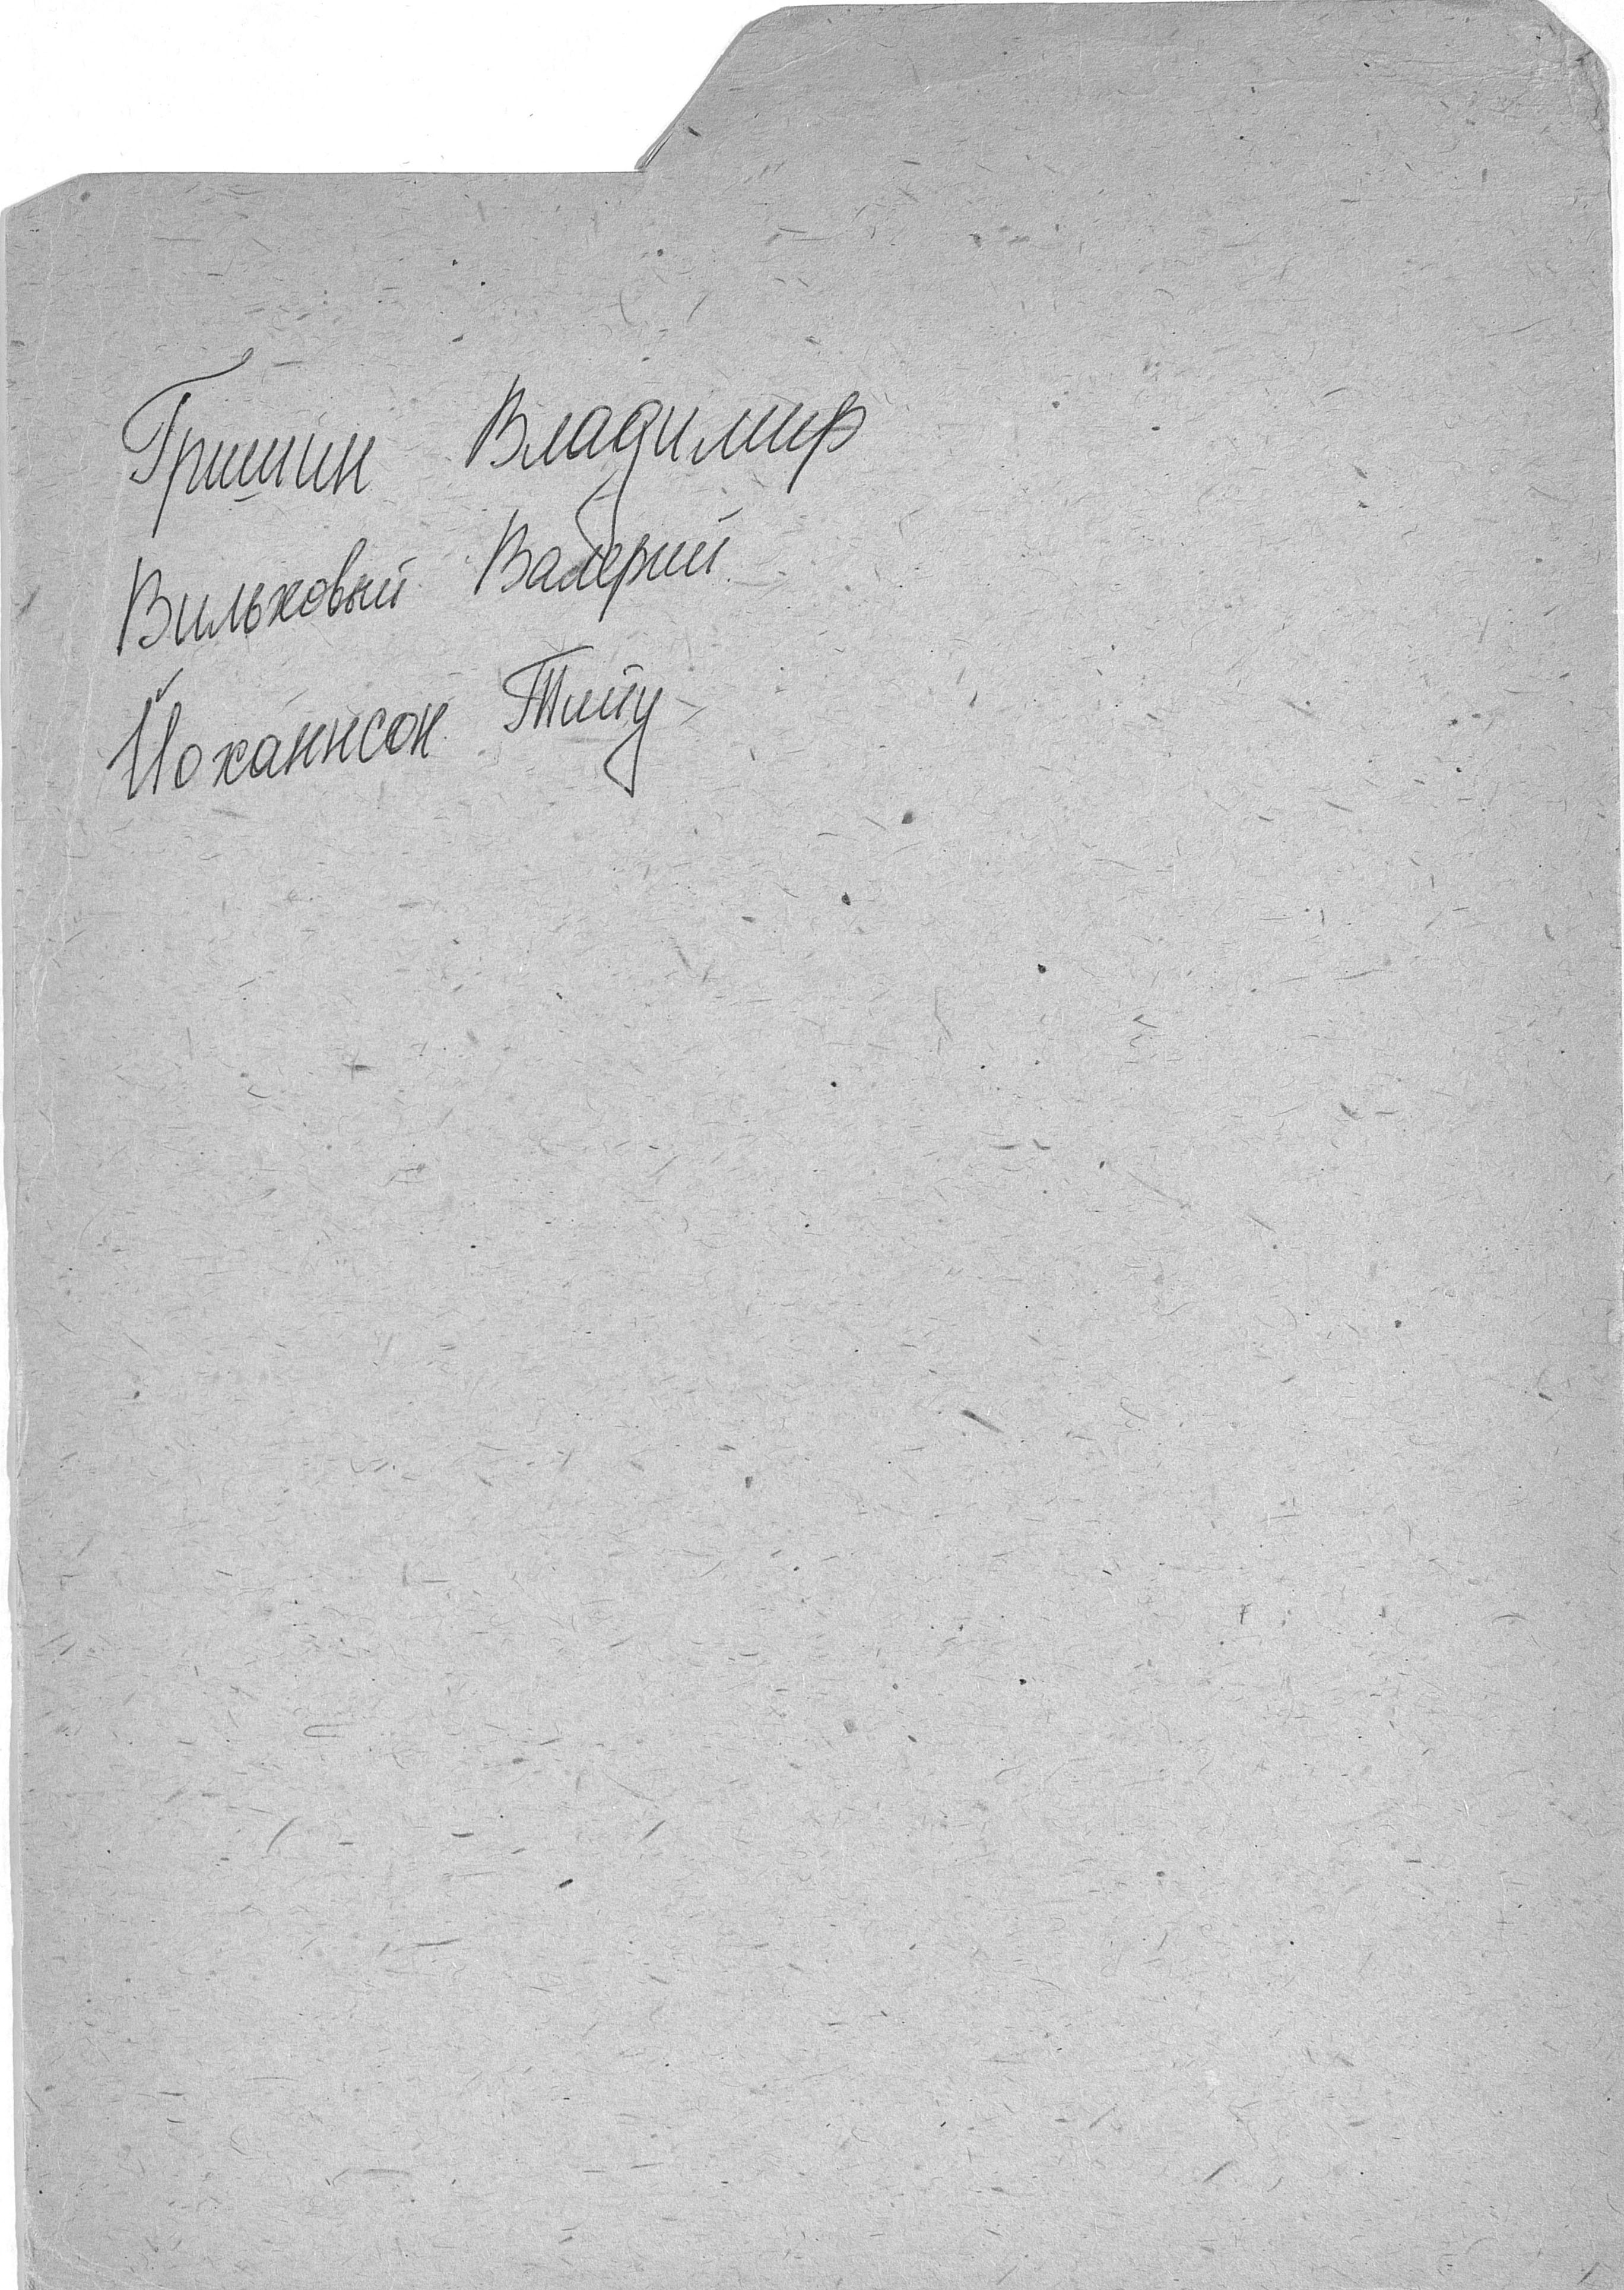 Гришин Владимир
Вильховый Валерий
Йоханнсон Тийу